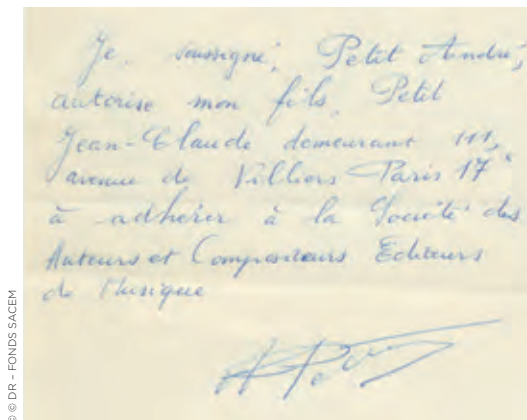 Je soussigné, Petit André,
autorise mon fils, Petit
Jean-Claude demeurant 111,
avenue de Villiers Paris 17e
à adhérer à la Société des
Auteurs et Compositeurs Editeurs
de Musique
© DR – FONDS SACEM